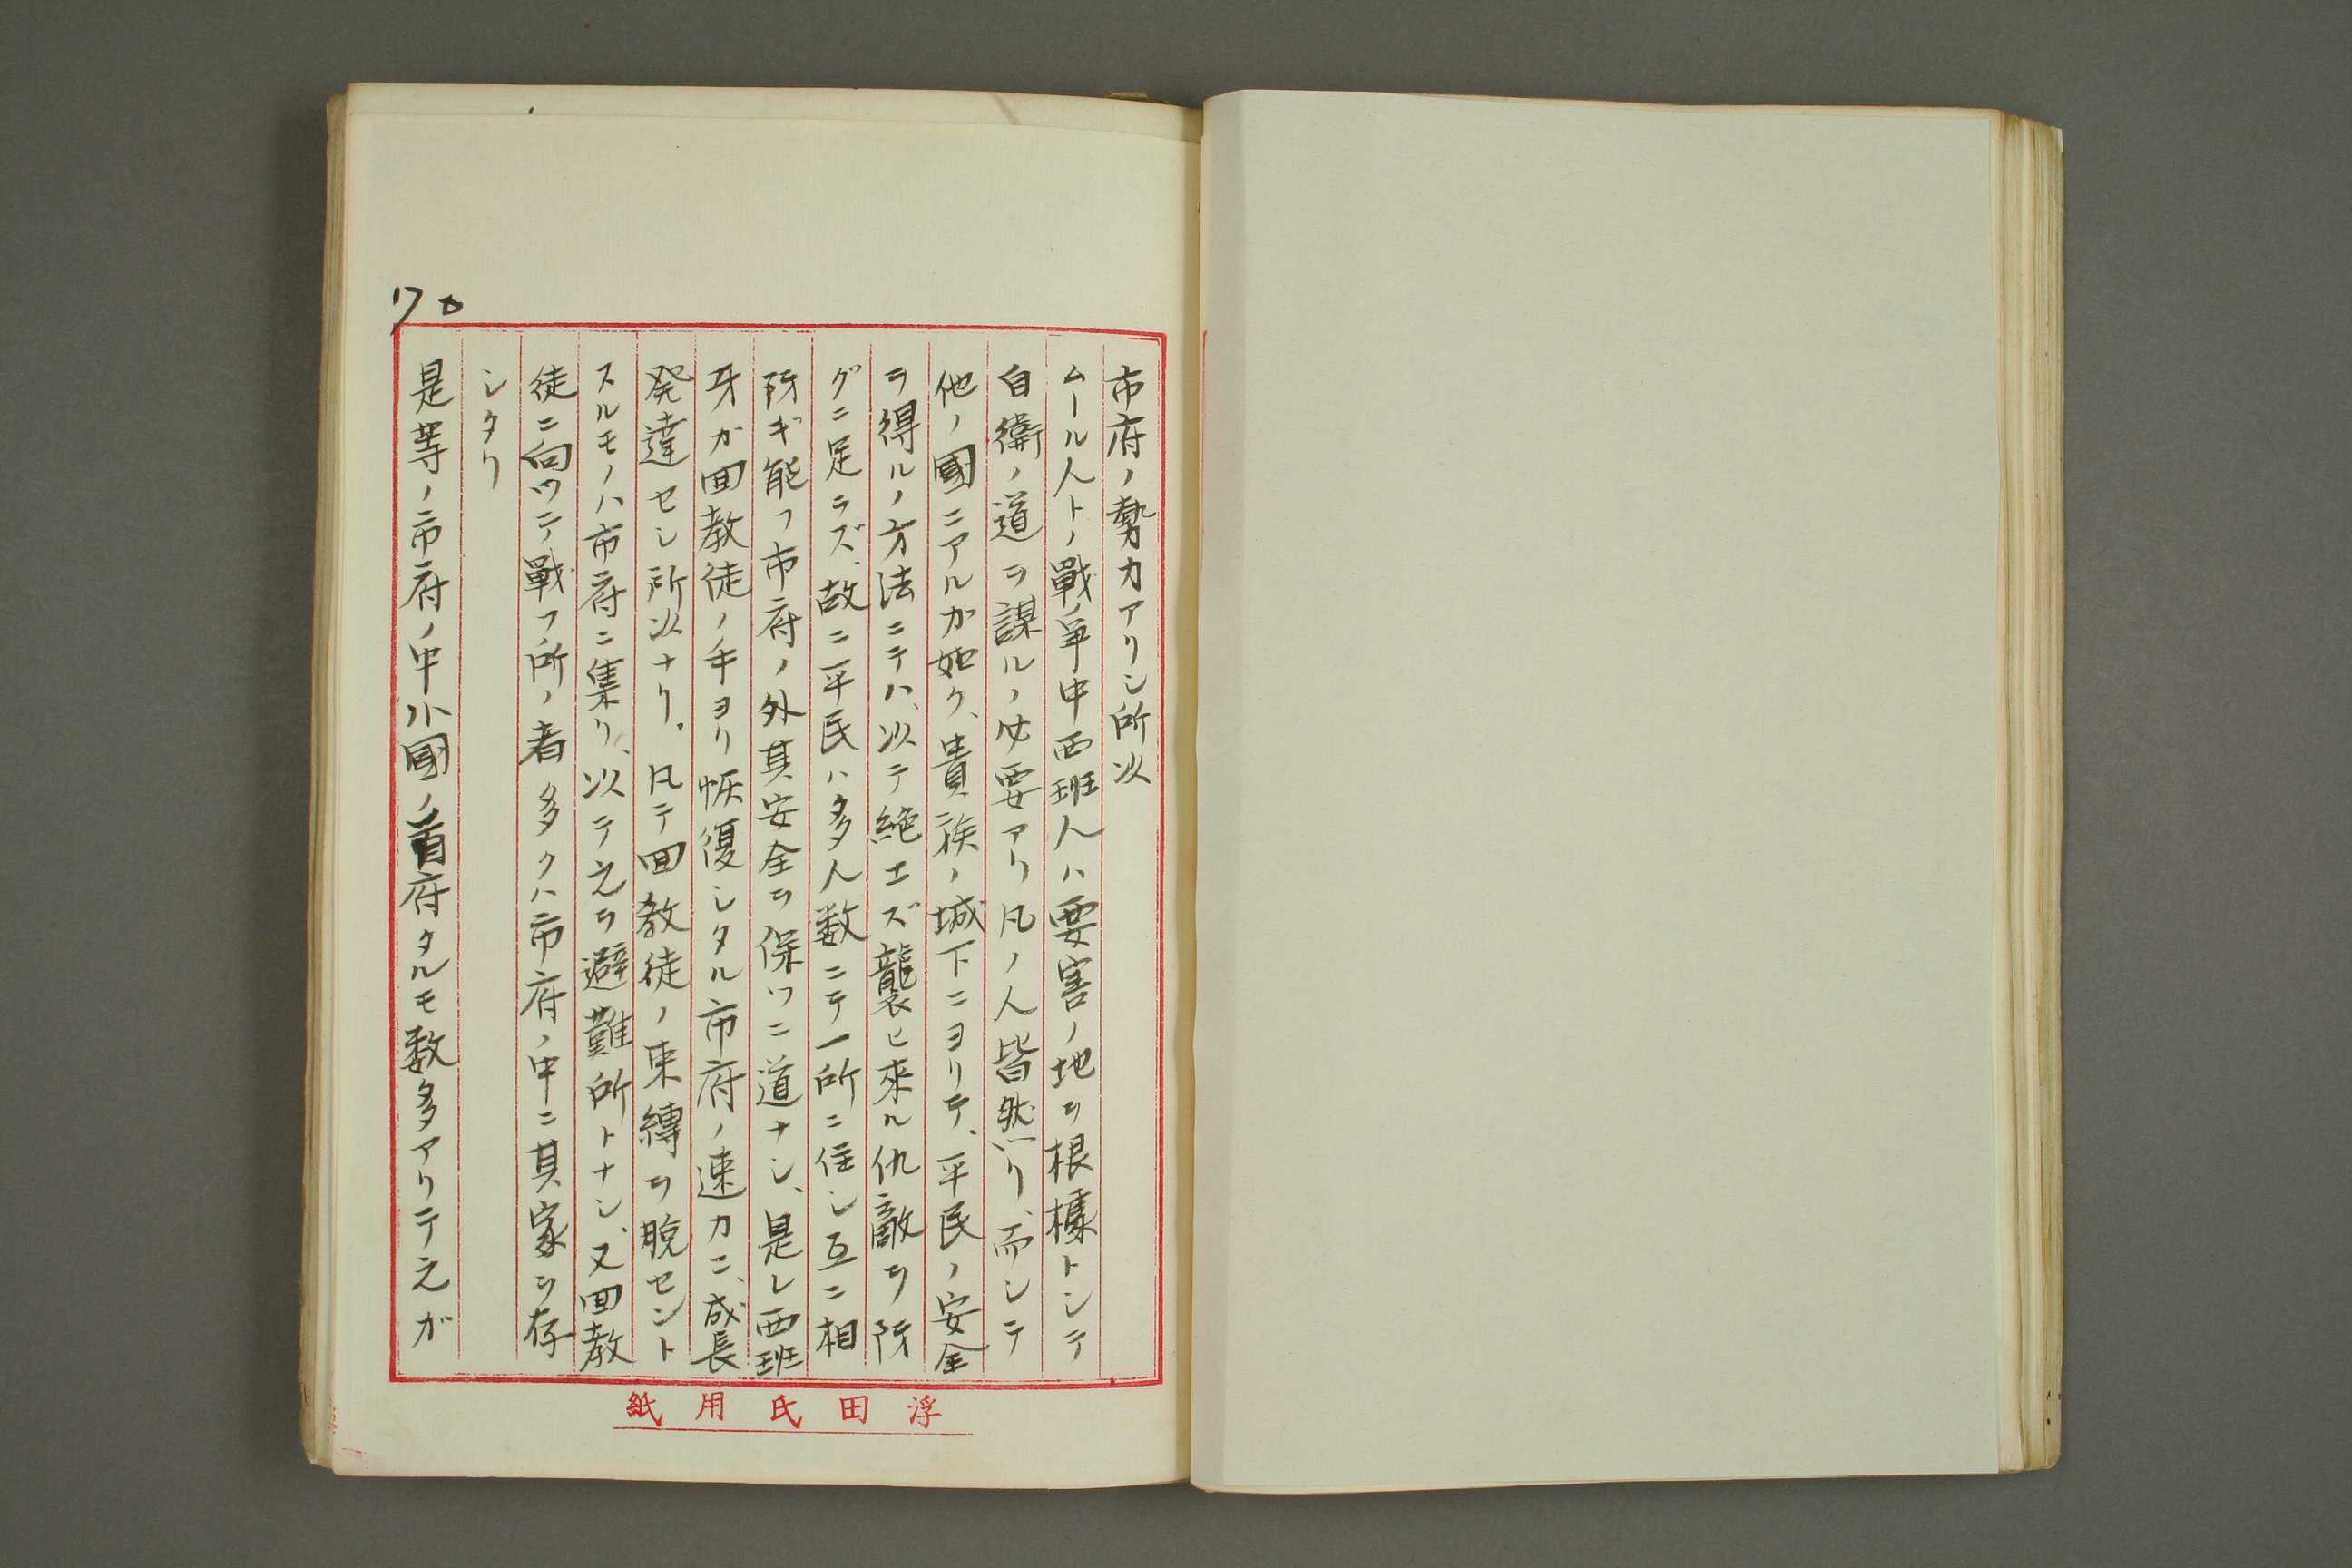 70
市府ノ勢力アリシ所以
ムール人トノ戰爭中西班人ハ要害ノ地ヲ根據トシテ
自衛ノ道ヲ謀ルノ必要アリ凡ノ人皆然リ、而シテ
他ノ國ニアルガ如ク、貴族ノ城下ニヨリテ、平民ノ安全
ヲ得ルノ方法ニテハ、以テ絶エズ襲ヒ來ル仇敵ヲ防
グニ足ラズ、故ニ平民ハ多人数ニテ一所ニ住シ互ニ相
防ギ能フ市府ノ外其安全ヲ保ツニ道ナシ、是レ西班
牙ガ回教徒ノ手ヨリ恢復シタル市府ノ速カニ、成長
発達セシ所以ナリ。凡テ回教徒ノ束縛ヲ脱セント
スルモノハ市府ニ集リ、以テ之ヲ避難所トナシ、又回教
徒ニ向ツテ戰フ所ノ者多クハ市府ノ中ニ其家ヲ存
シタリ
是等ノ市府ノ中小國ノ首府タルモ数多アリテ之ガ
浮田氏用紙